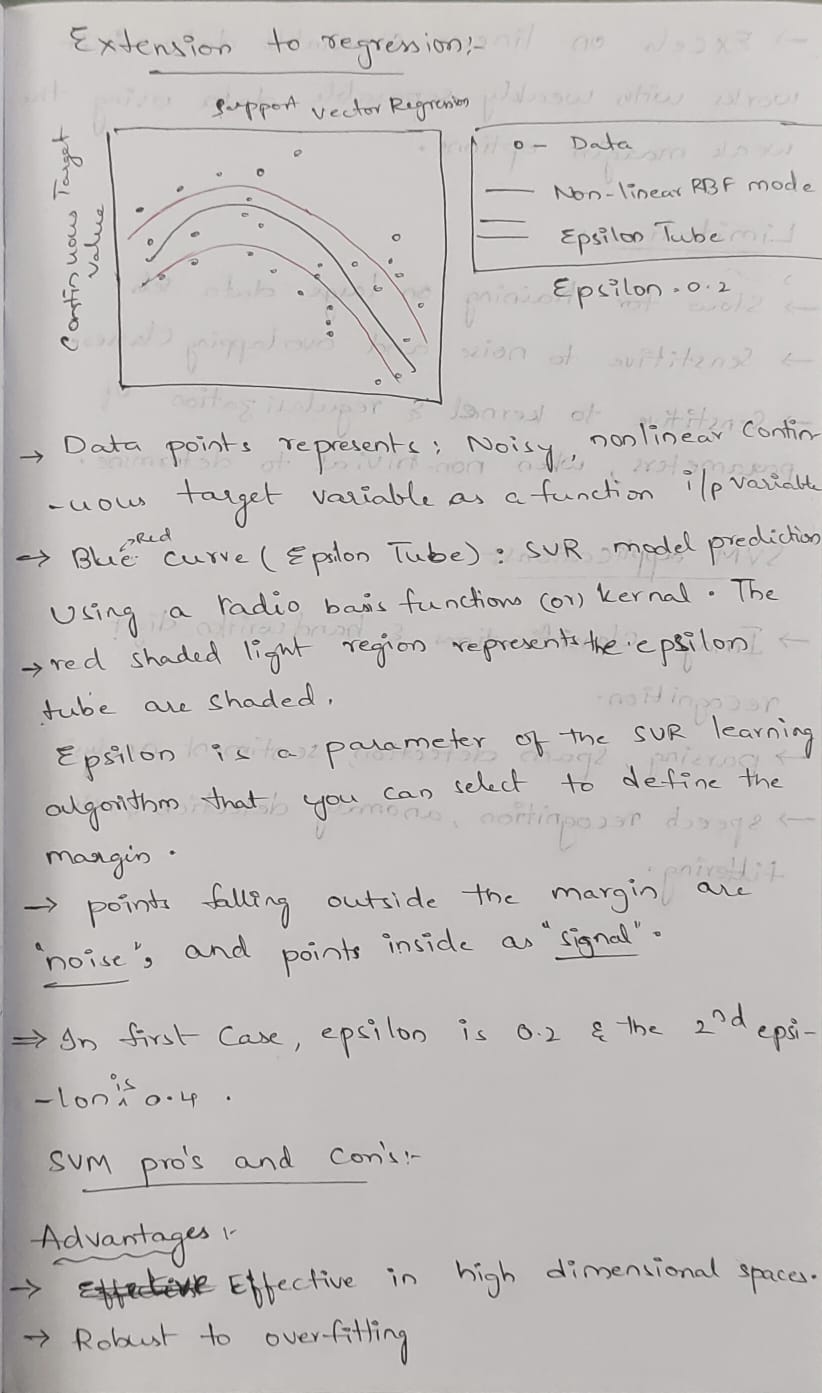 Extension to regression:-
Support Vector Regression
Continuous Target
Value
o - Data
Non-linear RBF mode
Epsilon Tube
Epsilon = 0.2
→ Data points represents : Noisy, nonlinear contin-
-uous target variable as a function i/p variable
→ Blue curve (Epsilon Tube) : SVR model prediction
→Red
Using a radio basis functions (or) kernal. The
→ red shaded light region represents the epsilon
tube are shaded.
Epsilon is a parameter of the SVR learning
algorithm that you can select to define the
margin.
→ points falling outside the margin are
"noise", and points inside as "signal".
⇒ In first case, epsilon is 0.2 & the 2nd epsi-
-lon is 0.4 .
SVM pro's and con's:-
Advantages :-
→ Effective in high dimensional spaces.
→ Robust to over-fitting